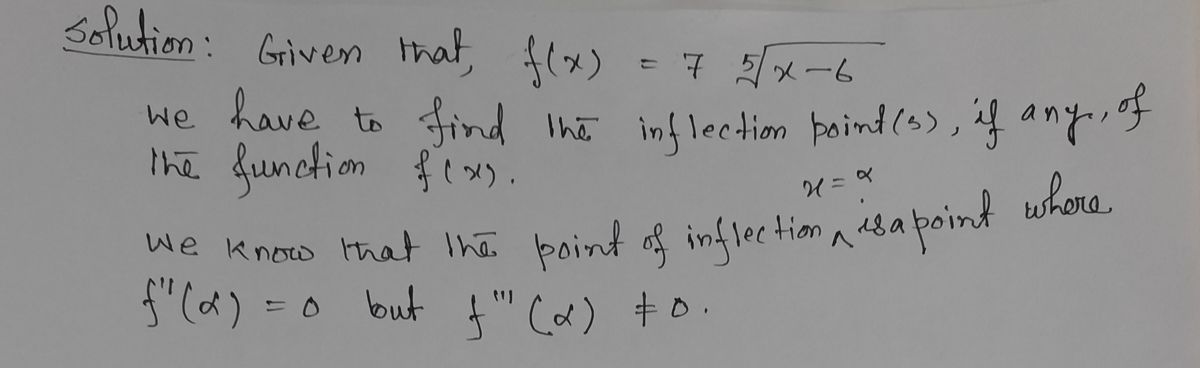 Solution: Given that, f(x) = 7 ⁵√(x-6)
We have to find the inflection point(s), if any, of
the function f(x).
x = α
We know that the point of inflection ^ is a point where
f''(α) = 0 but f'''(α) ≠ 0.